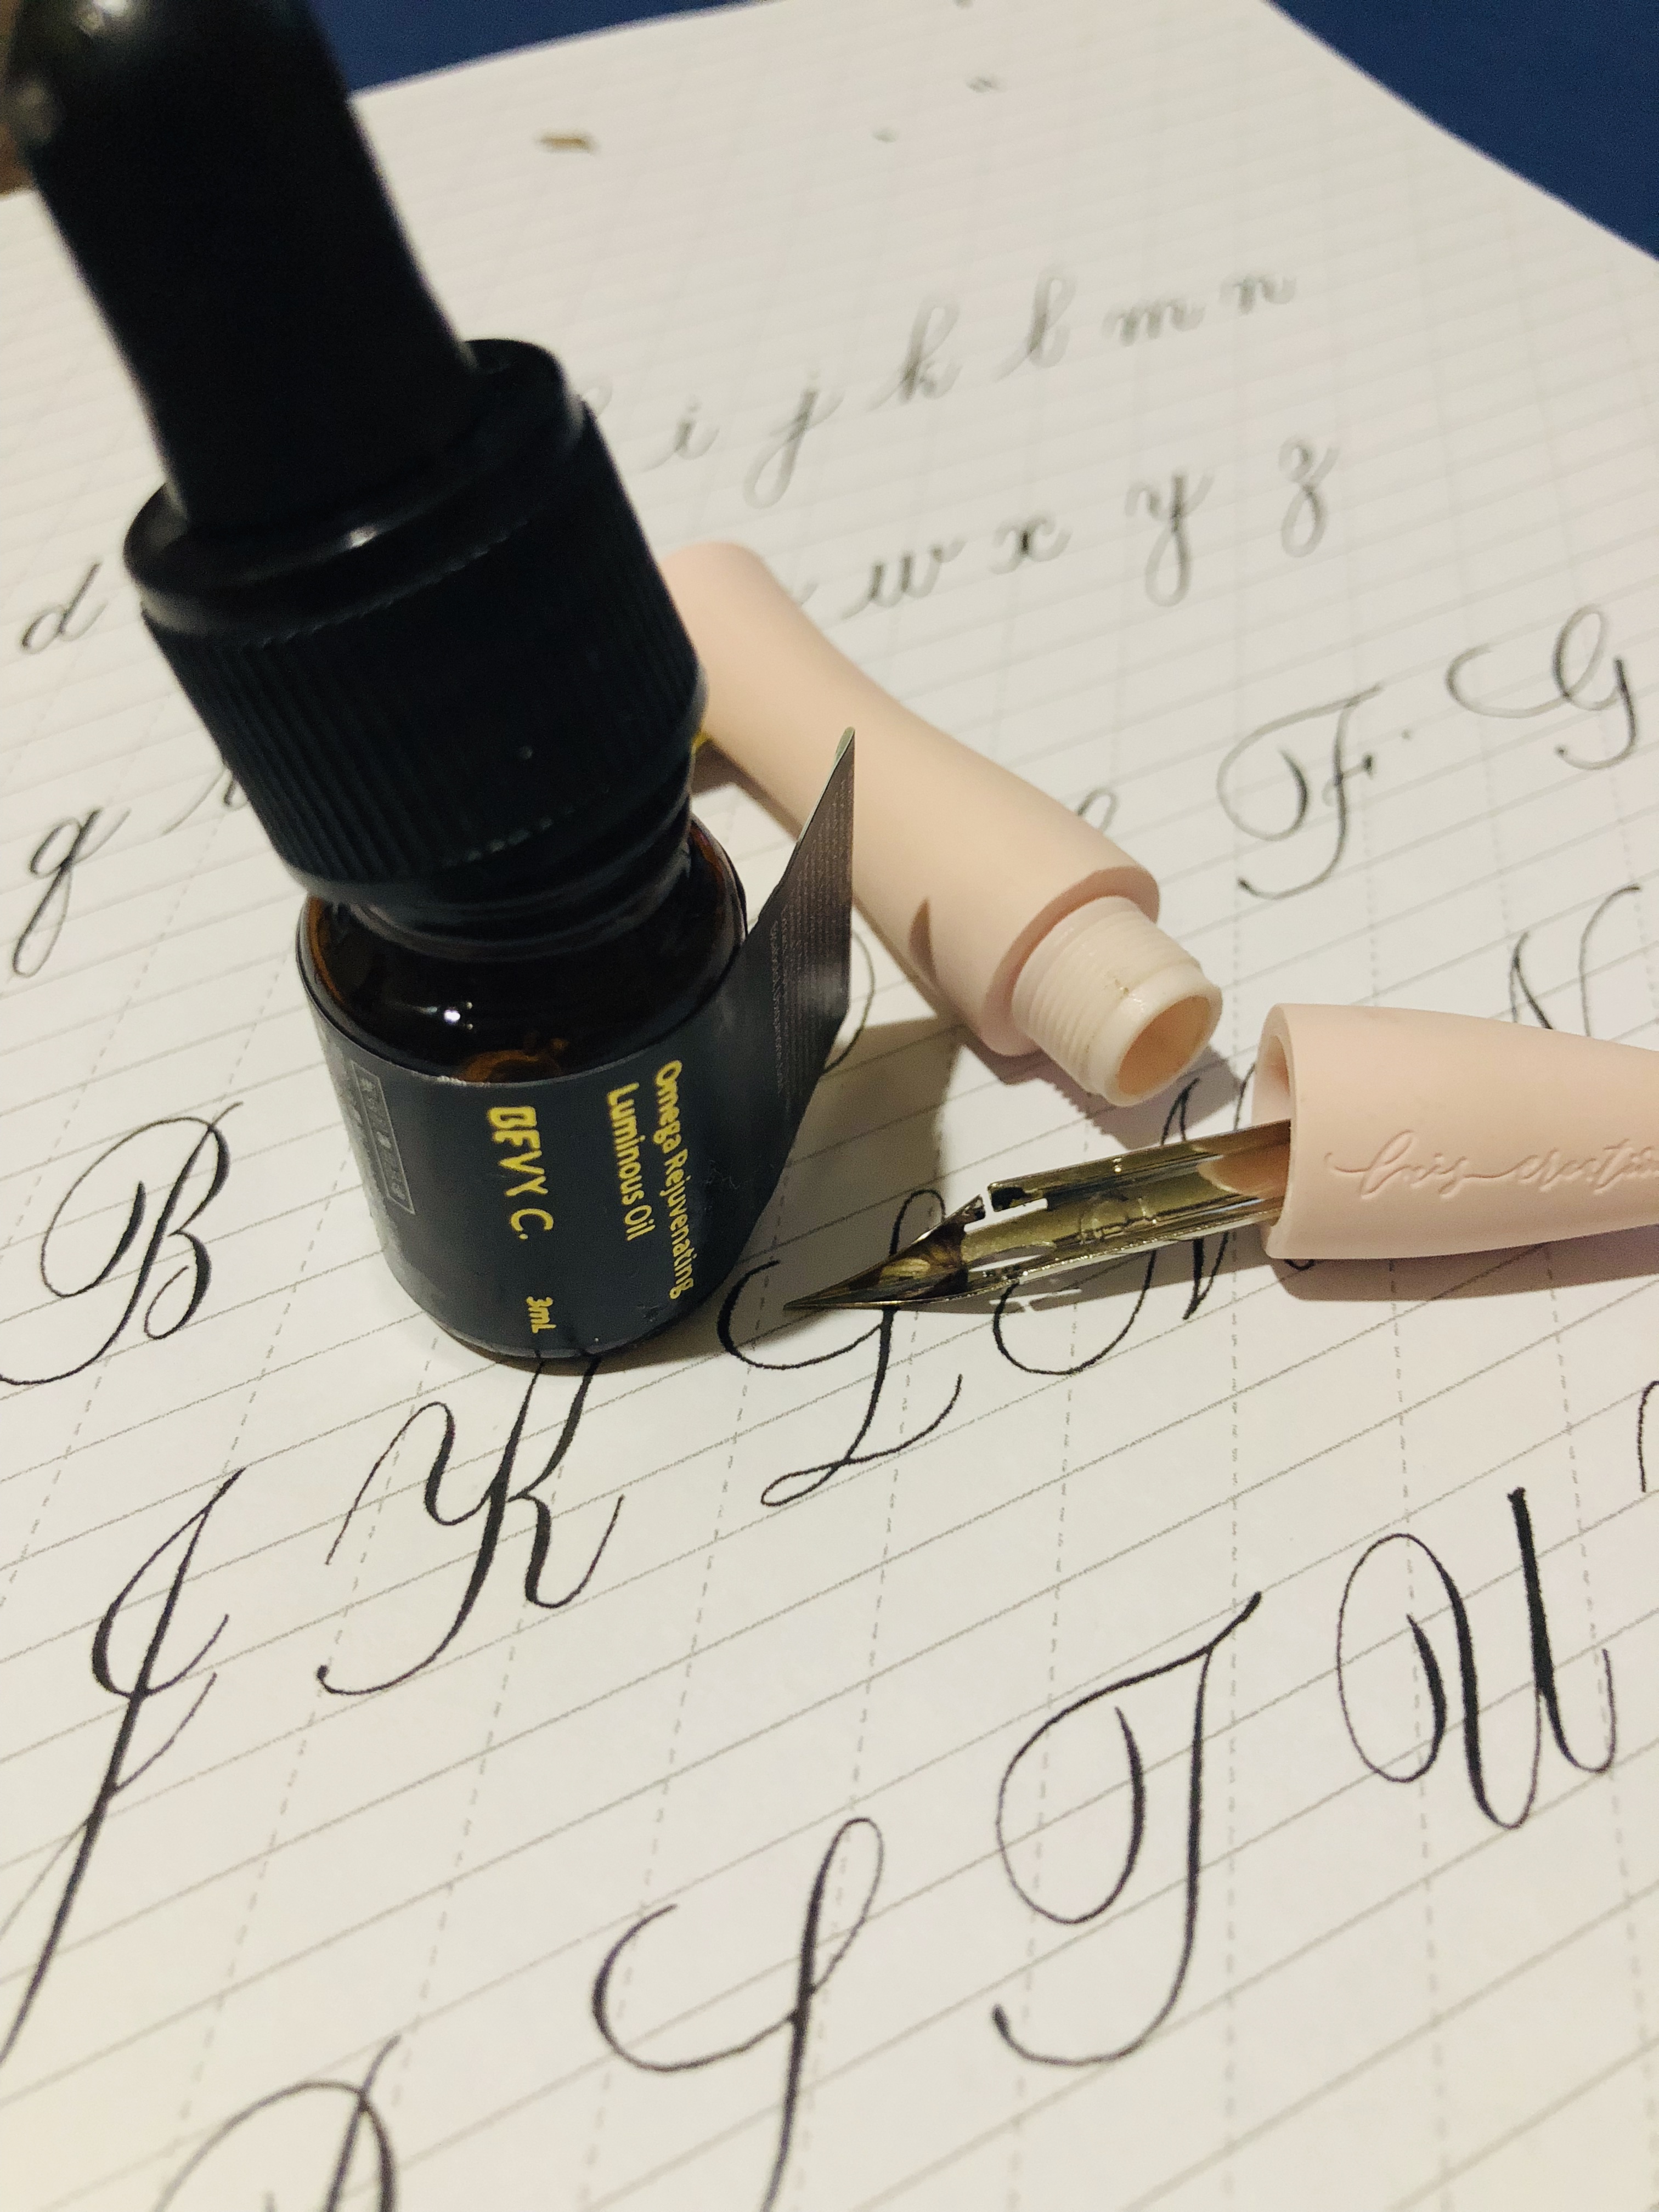 i j k l m n
d
w x y z
g
F G
N
B
L M
J K
S T U
Omega Rejuvenating
Luminous Oil
BFVY C.
3mL